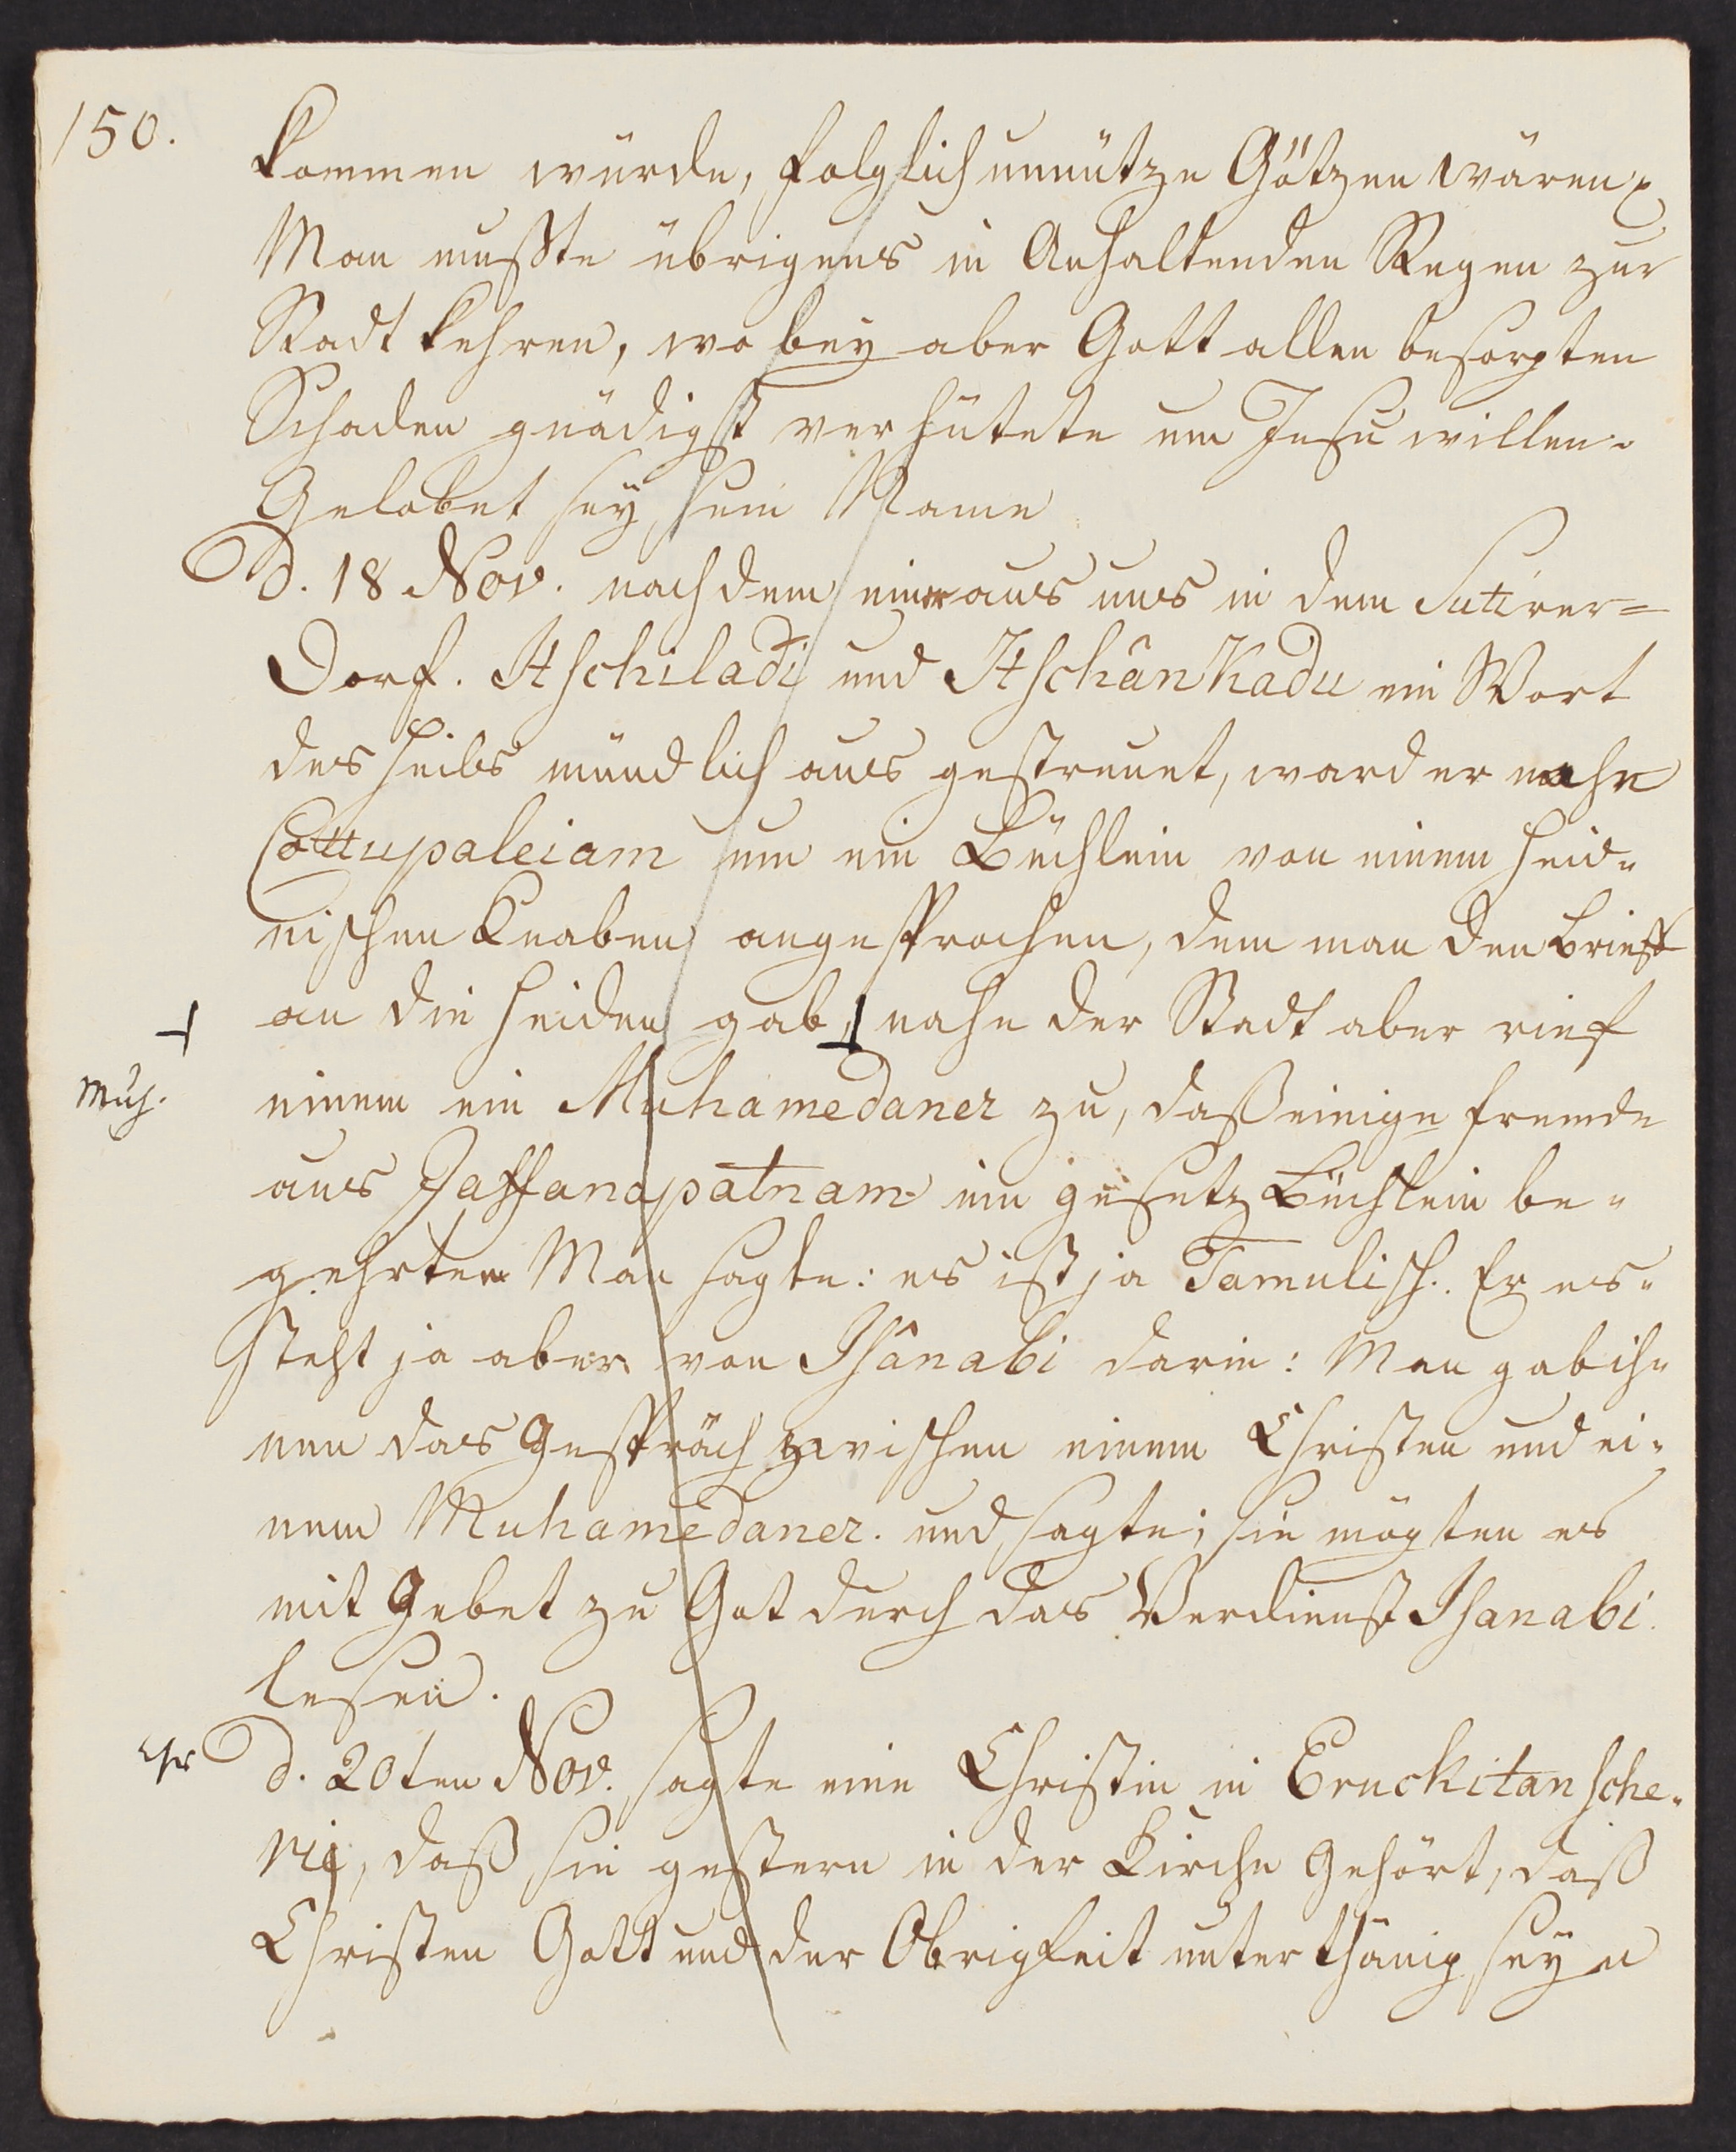 150.
kommen würde, folglich unnütze Götzen wären
Man mußte übrigens in Anhaltenden Regen zur
Stadt kehren, wo bey aber Gott allen besorgten
Schaden gnädigst verhütete um Jesu willen.
Gelobet sey sein Name
D. 18 Nov. nach dem einer aus uns in dem Sutirer=
Dorf. Atschiladi und Atschânkadu ein Wort
des Heils mündlich aus gestreuet, ward er nahe
Cottupaleiam um ein Büchlein von einem heid-
nischen Knaben angesprochen, dem man den Brieff
an die Heiden gab, nahe der Stadt aber rief
Muh.
einem ein Muhamedaner zu, daß einige fremde
aus Jaffanapatnam ein gesetz Büchlein be-
gehrten Man sagte: es ist ja Tamulisch. Er es
steht ja aber von Isânabi darin: Man gab ih-
nen das Gespräch zwischen einem Christen und ei-
nem Muhamedaner. und sagte; sie mögten es
mit Gebet zu Got durch das Verdienst Isanabi
lesen.
Chr
D. 20ten Nov. sagte eine Christin in Eruckitansche-
rij, daß sie gestern in der Kirche Gehört, daß
Christen Gott und der Obrigkeit unterthänig seyn